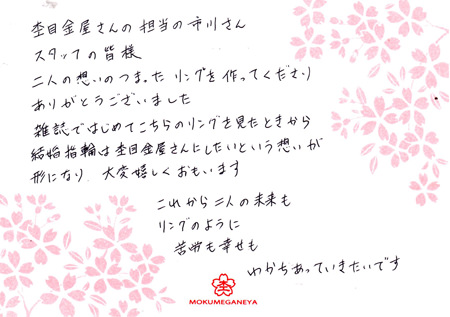 杢目金屋さんの担当の市川さん
スタッフの皆様
二人の想いのつまった リングを作ってくださり
ありがとうございました
雑誌ではじめてこちらのリングを見たときから
結婚指輪は杢目金屋さんにしたいという想いが
形になり、大変嬉しくおもいます
これから二人の未来も
リングのように
苦労も幸せも
わかちあっていきたいです
MOKUMEGANEYA